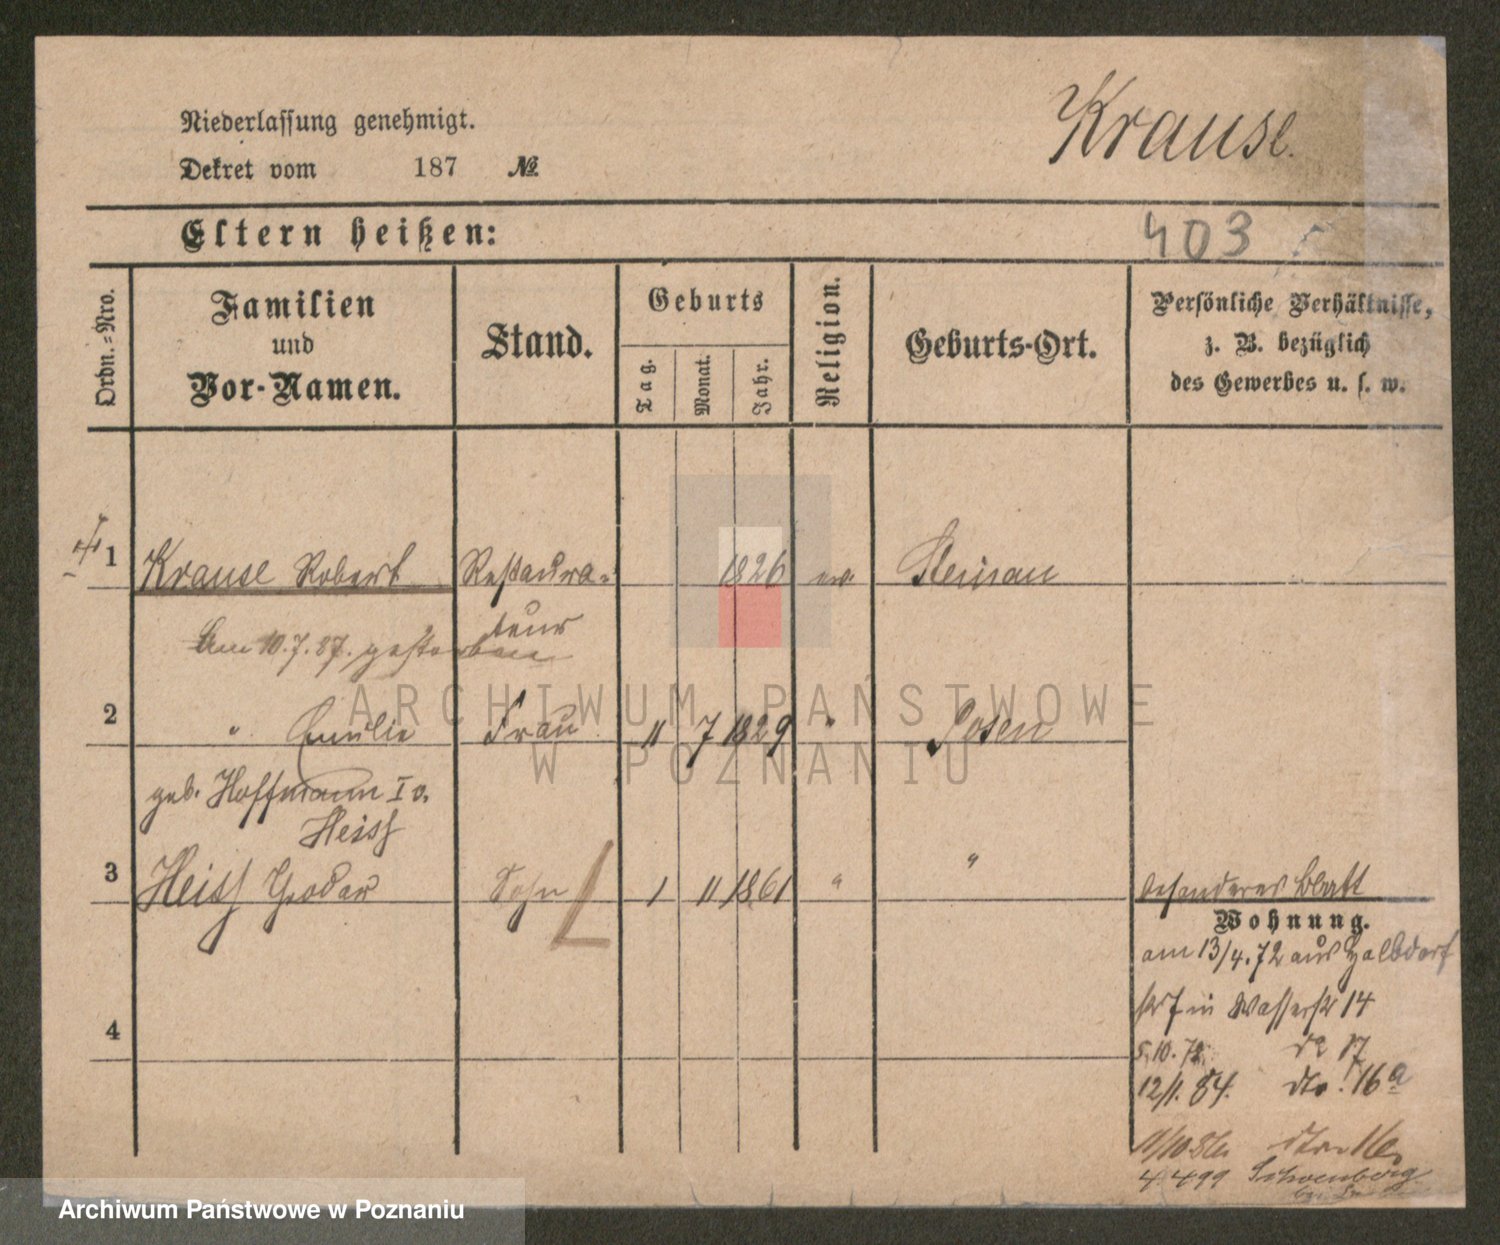 Niederlassung genehmigt.
Krause.
Dekret vom 187 №
Eltern heißen:
403
Ordn.-Nro.
Familien
und
Vor-Namen.
Stand.
Geburts
Tag.
Monat.
Jahr.
Religion.
Geburts-Ort.
Persönliche Verhältnisse,
z. B. bezüglich
des Gewerbes u. s. w.
1 Krause Robert Restaura- 1826 ev. Steinau
teur
Am 10.7.87. gestorben
2 " Emilie Frau 11 7 1829 " Posen
geb. Hoffmann I v.
Heiss
3 Heiss Sohn 1 11 1861 " "
besonderes Blatt
Wohnung.
am 13/4.72 aus Halbdorf
str 7 in Wasserstr 14
4
5.10.72. do 17
12/1. 84. dto. 16a
4.4 99 Schoenberg
ARCHIWUM PAŃSTWOWE
W POZNANIU
Archiwum Państwowe w Poznaniu